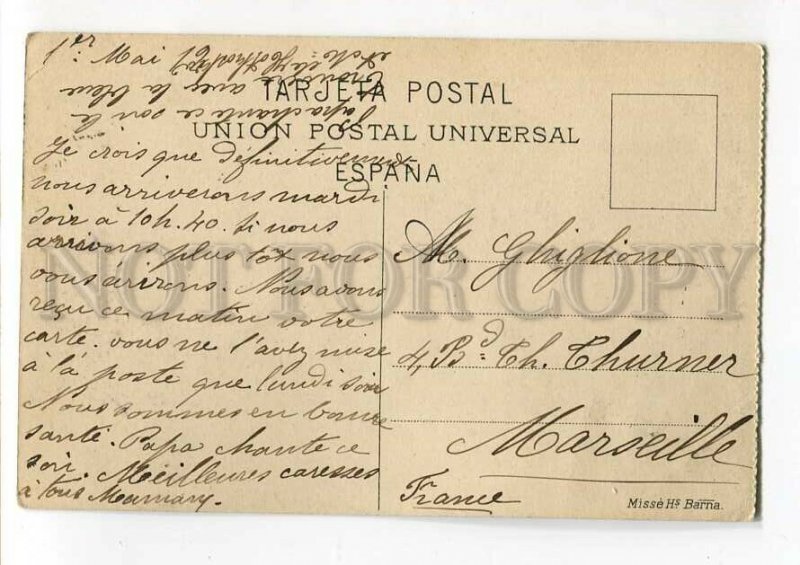 1er Mai
TARJETA POSTAL
UNION POSTAL UNIVERSAL
ESPAÑA
Je crois que définitivement
nous arriverons mardi
soir à 10h.40. Si nous
arrivons plus tôt nous
vous écrirons. Nous avons
reçu ce matin votre
carte. vous ne l'avez mise
à la poste que lundi soir
Nous sommes en bonne
santé. Papa chante ce
soir. Meilleures caresses
à tous Mamary.
Papa chante ce soir la
avec la bleue
M. Ghiglione
4, Bd. Ch. Thurner
Marseille
France
Missé Hs Barna.
NOT FOR COPY